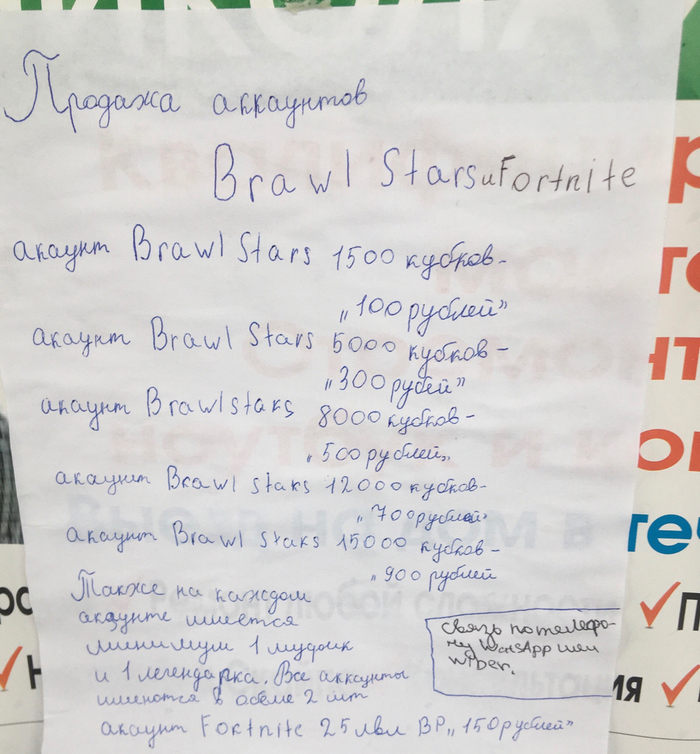 Продажа аккаунтов
Brawl Stars и Fortnite
акаунт Brawl Stars 1500 кубков-
„100 рублей”
акаунт Brawl Stars 5000 кубков-
„300 рубей”
акаунт Brawlstaks 8000 кубков-
„500 рублей„
акаунт Brawl staks 12000 кубков-
„700 рублей”
акаунт Brawl staks 15000 кубков-
„900 рублей
Также на каждом
акаунте имеется
минимум 1 мифик
и 1 легендарка. Все аккаунты
имеются в обеме 2 шт
Связь по телефо-
ну WatsApp или
wiber.
акаунт Fortnite 25 лвл BP „150 рублей”